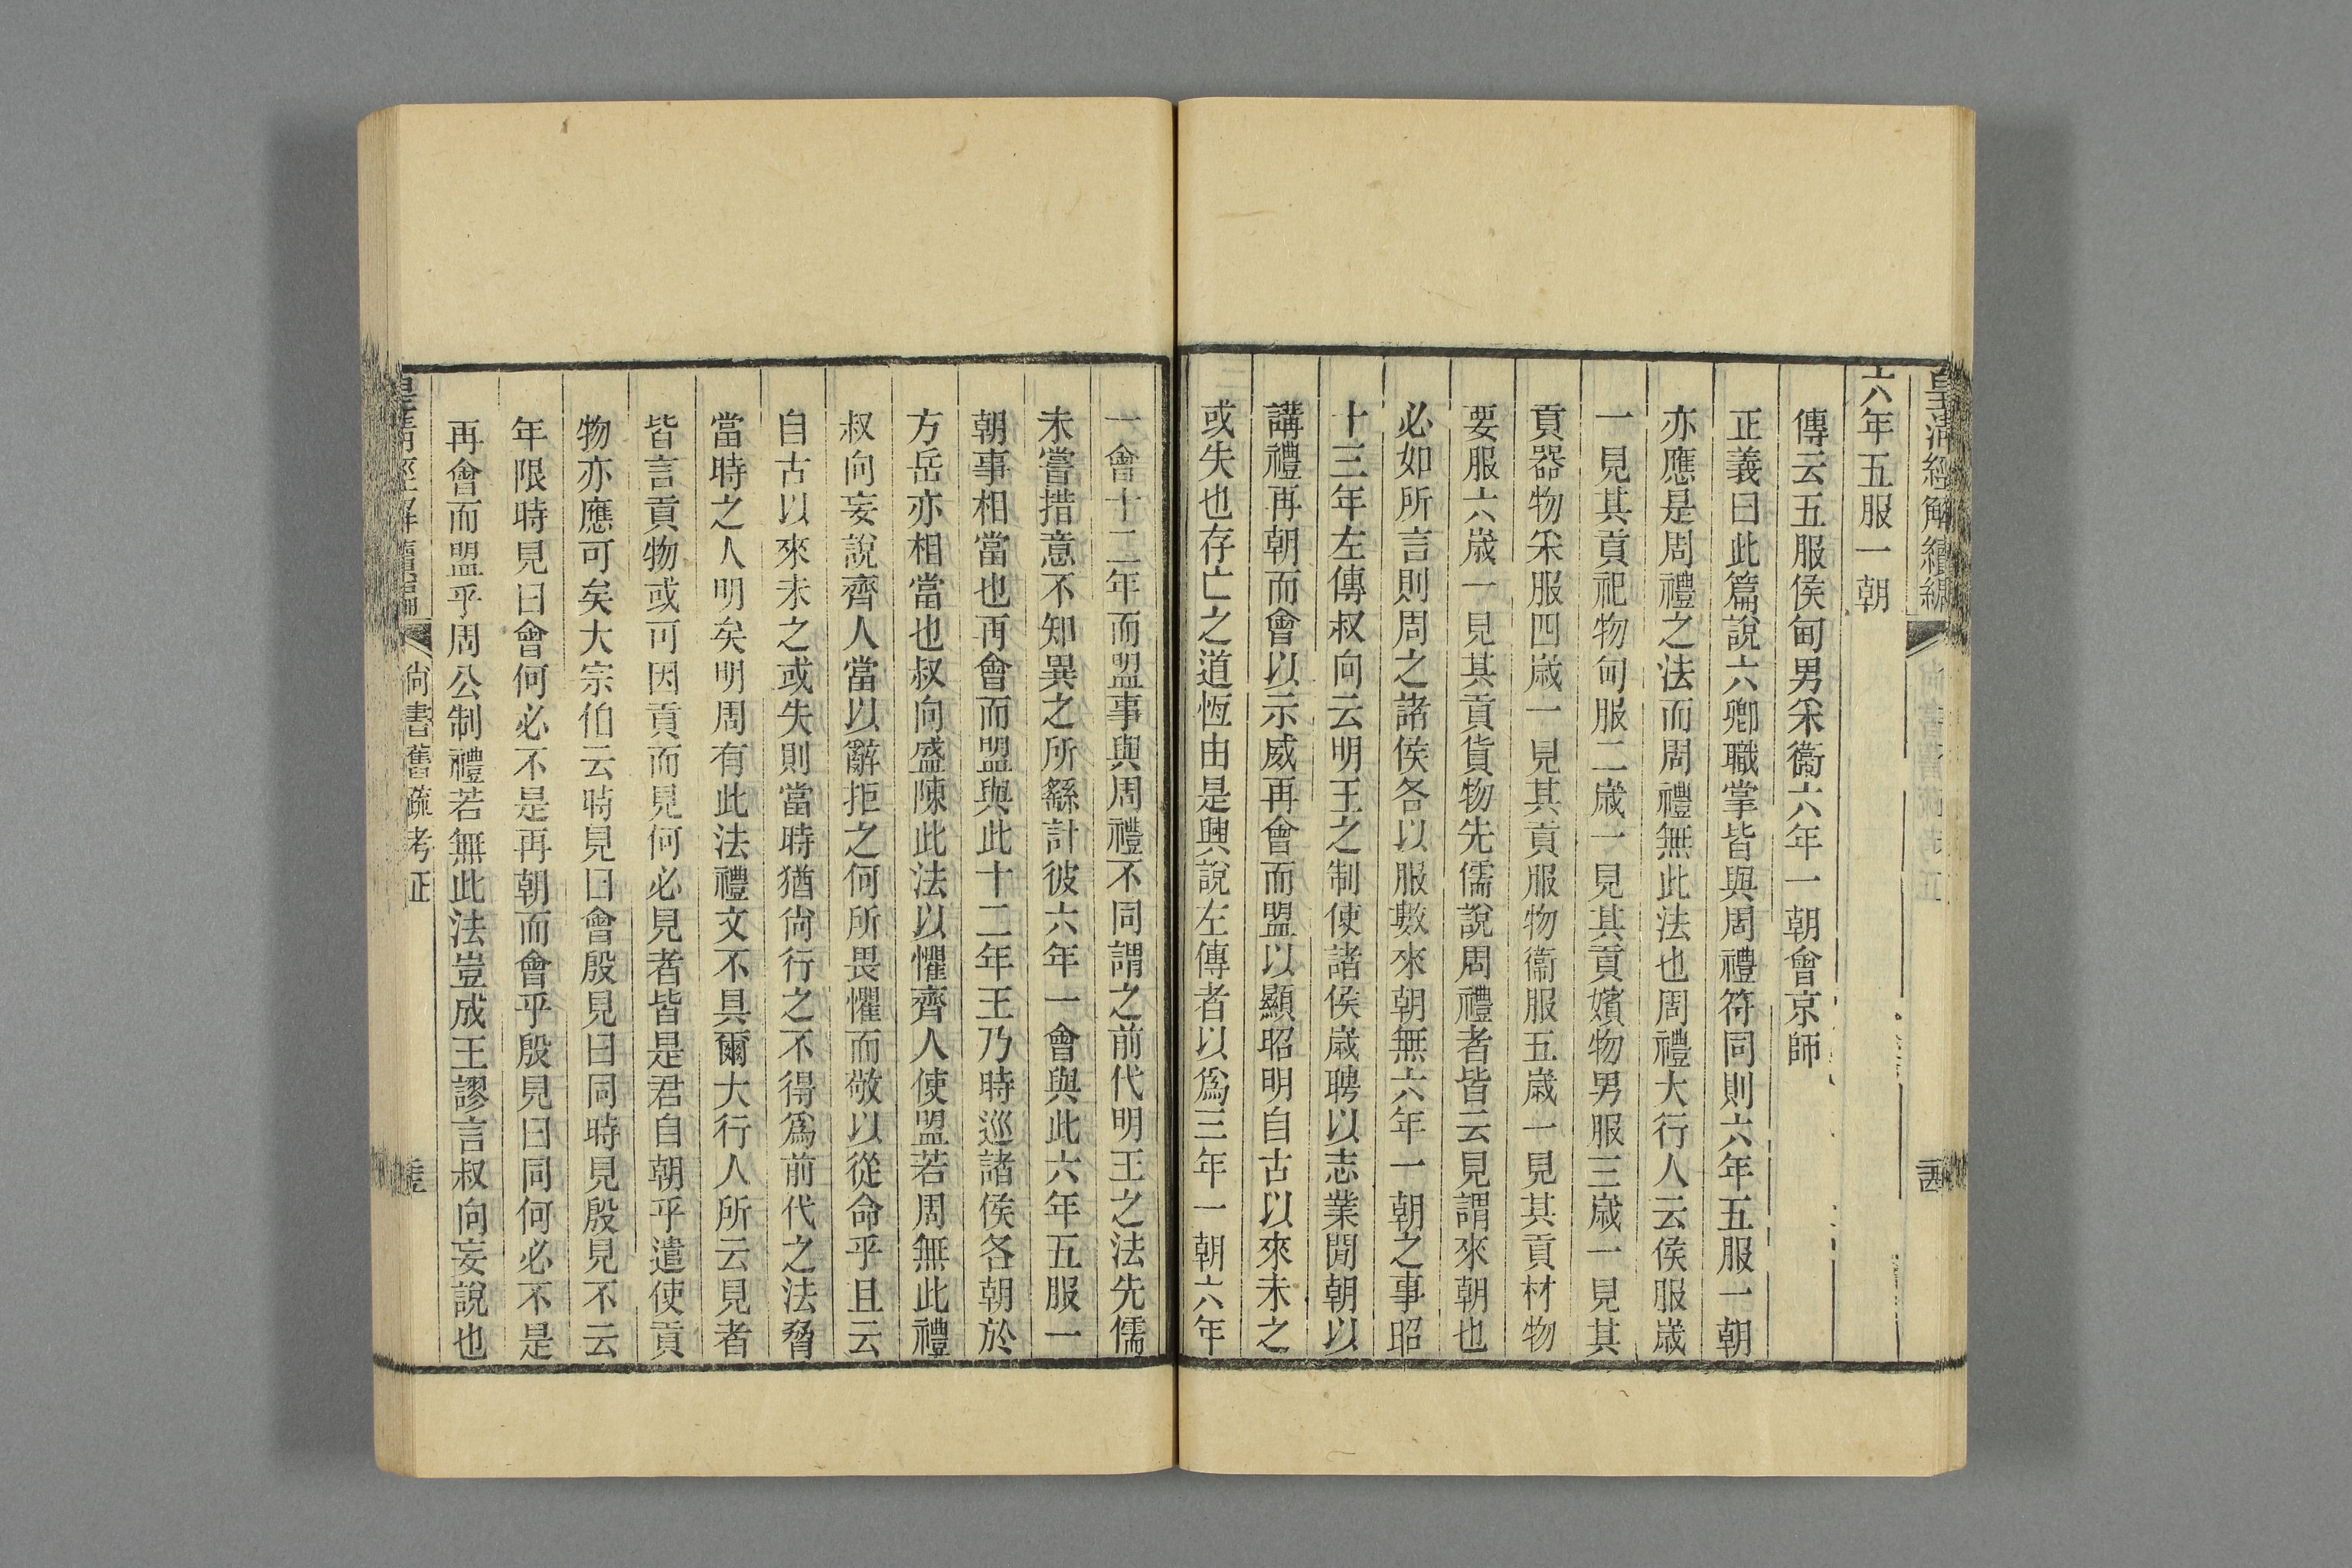 皇清經解續編
六年五服一朝
傳云五服侯甸男采衞六年一朝會京師
正義曰此篇說六卿職掌皆與周禮符同則六年五服一朝
亦應是周禮之法而周禮無此法也周禮大行人云侯服歲
一見其貢祀物甸服二歲一見其貢嬪物男服三歲一見其
貢器物采服四歲一見其貢服物衞服五歲一見其貢材物
要服六歲一見其貢貨物先儒說周禮者皆云見謂來朝也
必如所言則周之諸侯各以服數來朝無六年一朝之事昭
十三年左傳叔向云明王之制使諸侯歲聘以志業閒朝以
講禮再朝而會以示威再會而盟以顯昭明自古以來未之
或失也存亡之道恆由是興說左傳者以爲三年一朝六年
一會十二年而盟事與周禮不同謂之前代明王之法先儒
未嘗措意不知異之所繇計彼六年一會與此六年五服一
朝事相當也再會而盟與此十二年王乃時巡諸侯各朝於
方岳亦相當也叔向盛陳此法以懼齊人使盟若周無此禮
叔向妄說齊人當以辭拒之何所畏懼而敬以從命乎且云
自古以來未之或失則當時猶尙行之不得爲前代之法脅
當時之人明矣明周有此法禮文不具爾大行人所云見者
皆言貢物或可因貢而見何必見者皆是君自朝乎遣使貢
物亦應可矣大宗伯云時見曰會殷見曰同時見殷見不云
年限時見曰會何必不是再朝而會乎殷見曰同何必不是
再會而盟乎周公制禮若無此法豈成王謬言叔向妄說也
皇清經解續編 尙書舊疏考証